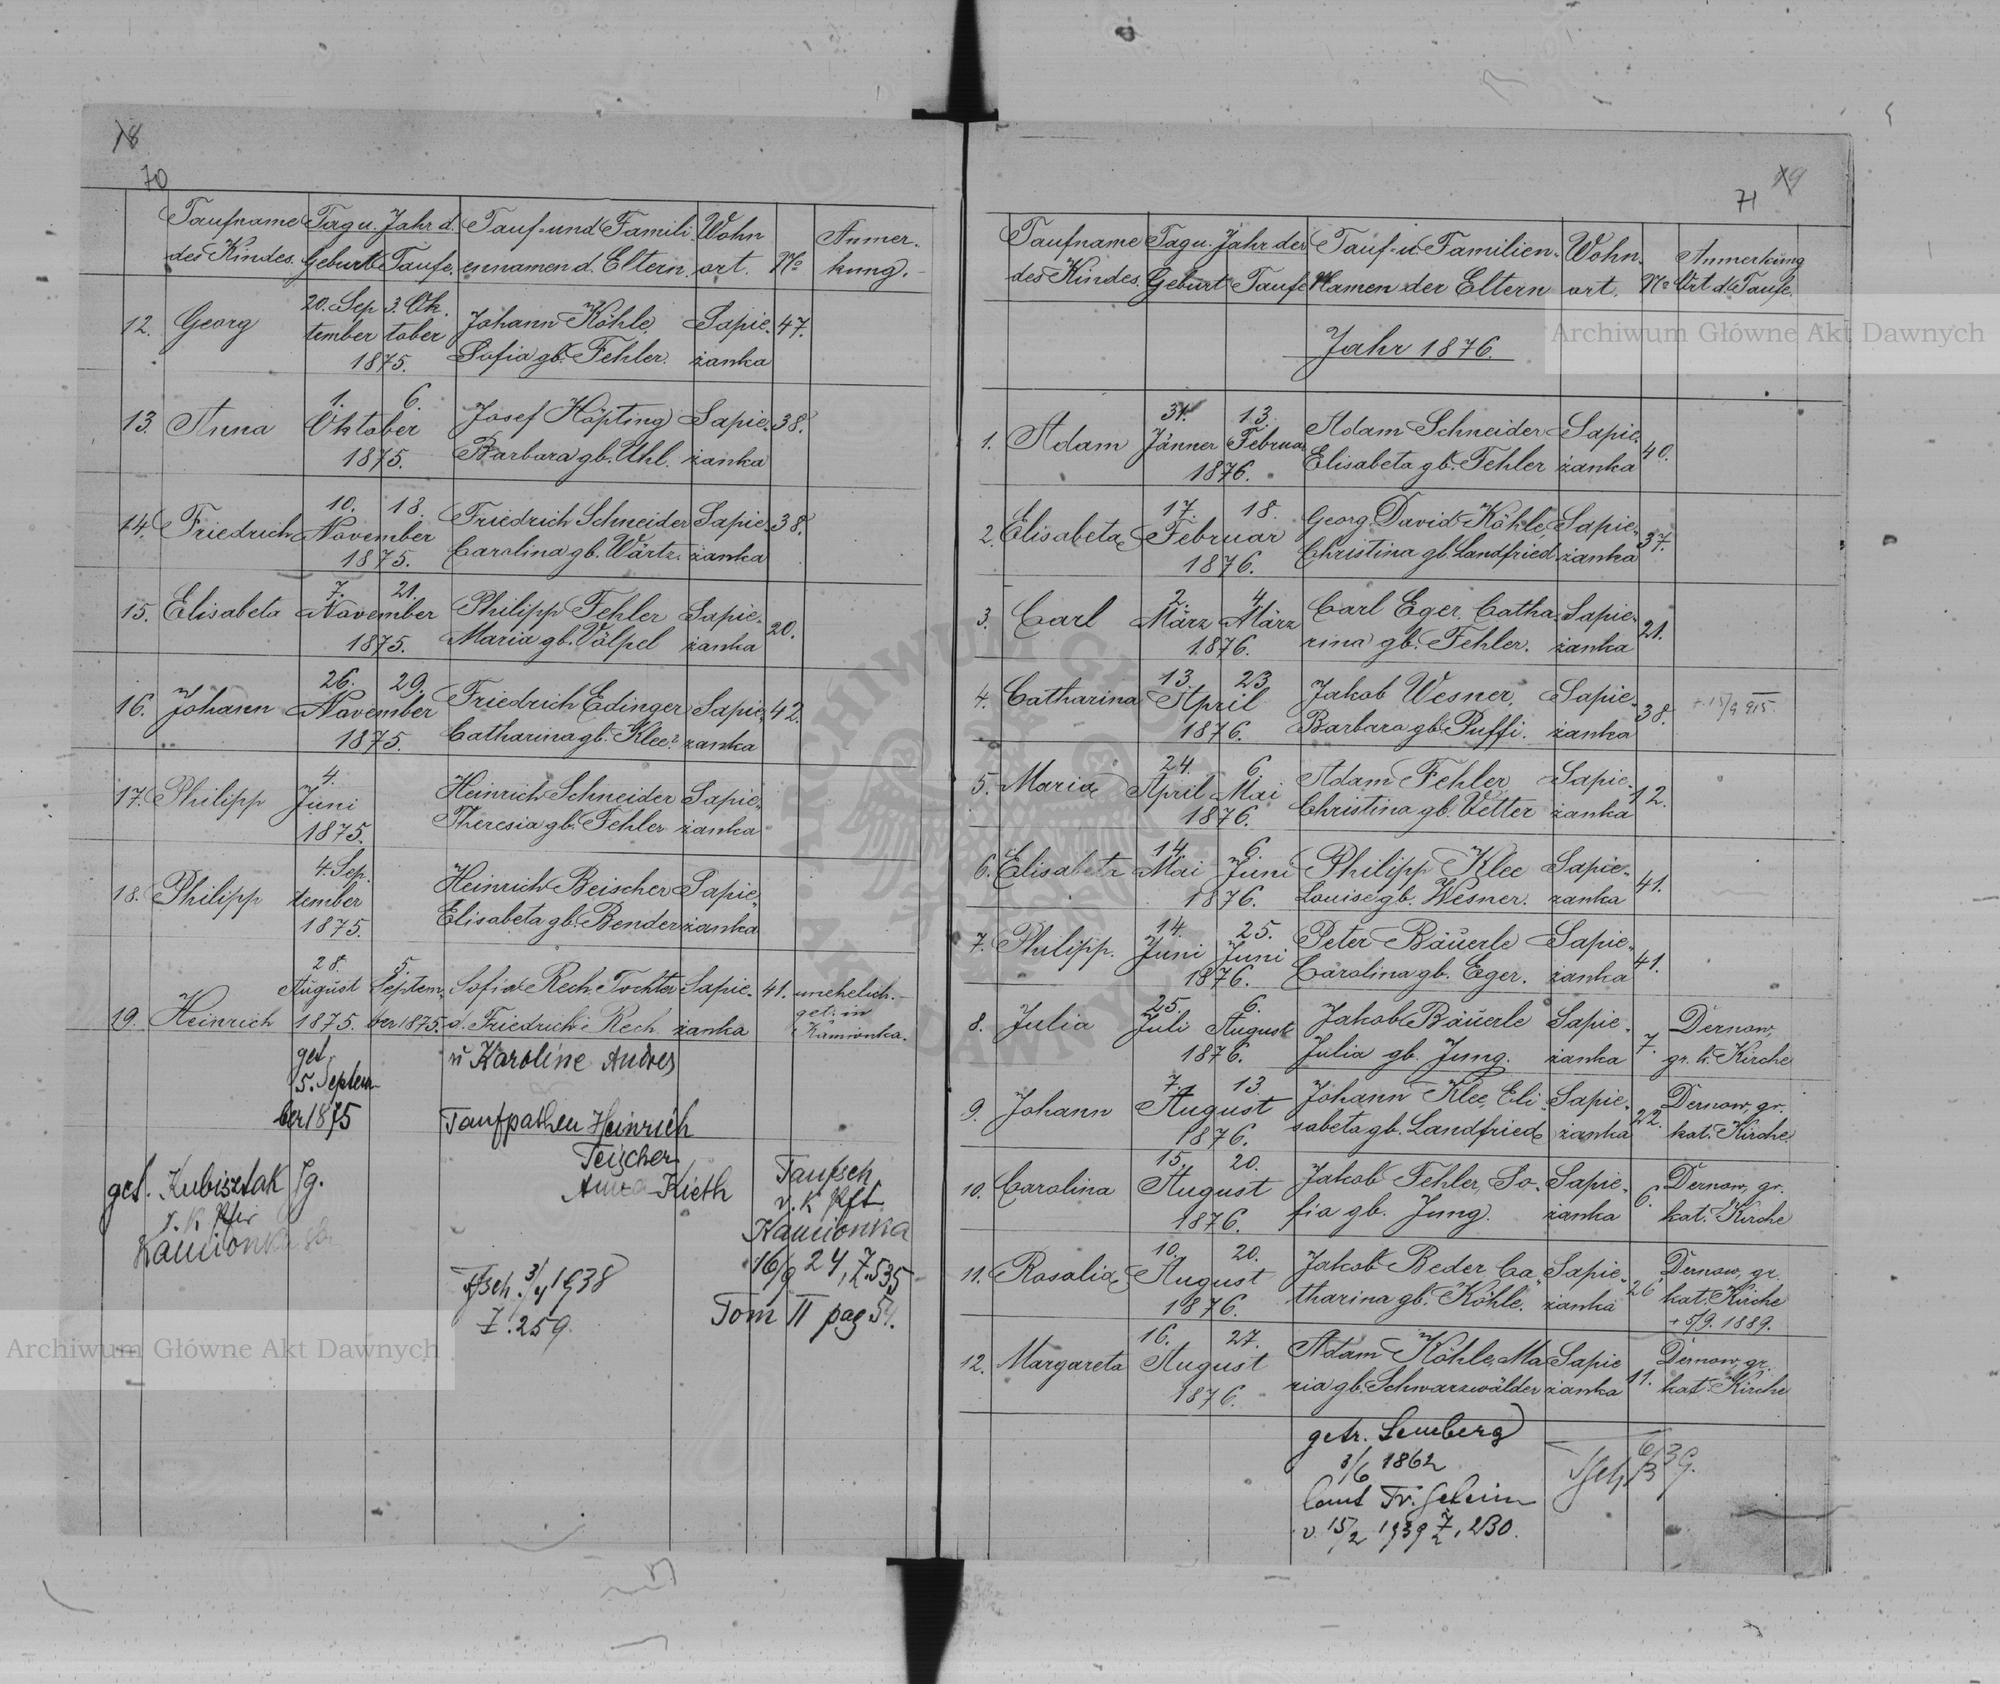 18
70
Taufname Tag u. Jahr d. Tauf- und Famili- Wohn Anmer-
des Kindes. Geburt Taufe. ennamen d. Eltern. ort. No kung.
20. Sep 3. Ok.
12. Georg tember tober Johann Köhle, Sapie- 47.
1875. Sofia gb. Fehler. żanka
1. 6.
13. Anna Oktober Josef Höpting Sapie- 38.
1875. Barbara gb. Uhl. żanka
10. 18.
14. Friedrich November Friedrich Schneider Sapie- 38.
1875. Carolina gb. Wärtz. żanka
7. 21.
15. Elisabeta November Philipp Fehler Sapie- 20.
1875. Maria gb. Völpel żanka
26. 29.
16. Johann November Friedrich Edinger Sapie- 42.
1875. Catharina gb. Klee. żanka
4.
17. Philipp Juni Heinrich Schneider Sapie-
1875. Theresia gb. Fehler żanka
4. Sep.
18. Philipp tember Heinrich Beischer Sapie-
1875. Elisabeta gb. Bender żanka
28. 5.
August Septem- Sofia Rech Tochter Sapie- 41. unehelich.
19. Heinrich 1875. ber 1875. d. Friedrich Rech. żanka get. in
Kamionka.
get. u Karoline Andres
5. Septem-
ber 1875 Taufpathen Heinrich
Teischer
Anna Kieth
get. Kubisztak Jg.
r. k. Pfr
Kamionka
Taufsch
v. K Pft
Kamionka
16/9 24, Z. 535
Tom II pag 54.
Tfsch. 3/4 1938
Z. 259.
19
71
Taufname Tag u. Jahr der Tauf- u. Familien- Wohn- Anmerkung
des Kindes. Geburt Taufe Namen der Eltern ort. No Ort d. Taufe.
Jahr 1876.
31. 13.
1. Adam Jänner Februar Adam Schneider Sapie- 40.
1876. Elisabeta gb. Fehler żanka
17. 18.
2. Elisabeta Februar Georg David Köhle, Sapie- 37.
1876. Christina gb. Landfried żanka
2. 4.
3. Carl März März Carl Eger, Catha- Sapie- 21.
1876. rina gb. Fehler. żanka
13. 23.
4. Catharina April Jakob Wesner, Sapie- 38.
1876. Barbara gb. Puffi. żanka
24. 6.
5. Maria April Mai Adam Fehler, Sapie- 12.
1876. Christina gb. Vetter żanka
14. 6.
6. Elisabeta Mai Juni Philipp Klee Sapie- 41.
1876. Louise gb. Wesner. żanka
14. 25.
7. Philipp. Juni Juni Peter Bäuerle Sapie- 41.
1876. Carolina gb. Eger. żanka
25. 6.
8. Julia Juli August Jakob Bäuerle Sapie- 7. Dernow,
1876. Julia gb. Jung. żanka gr. k. Kirche
7. 13.
9. Johann August Johann Klee, Eli- Sapie- 22. Dernow, gr.
1876. sabeta gb. Landfried żanka kat. Kirche
15. 20.
10. Carolina August Jakob Fehler, So- Sapie- 6. Dernow, gr.
1876. fia gb. Jung. żanka kat. Kirche
10. 20.
11. Rosalia August Jakob Beder Ca- Sapie- 26 Dernow, gr.
1876. tharina gb. Köhle. żanka kat. Kirche
+ 5/9. 1889.
16. 27.
12. Margareta August Adam Köhle, Ma Sapie 11. Dernow, gr.
1876. ria gb. Schwarzwälder żanka kat. Kirche
getr. Lemberg
3/6 1862
laut Tr. Schein
v. 15/2 1939 Z. 230.
Archiwum Główne Akt Dawnych
Archiwum Główne Akt Dawnych